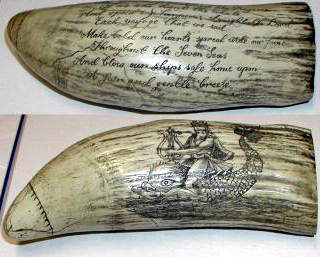 Each voyage that we sail
Make bold our hearts spread wide our fame
Throughout the Seven Seas
And blow our ships safe home upon
A good gentle breeze